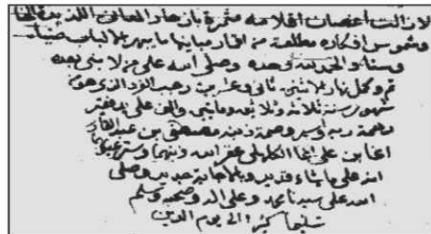 لازالت أغصان أقلامه مثمرة بأزهار المعاني
وشموس أفكاره مطلعة من أقمار مبانيها ما يبهر الألباب ضياء
وسناء والحمد لله وحده وصلى الله على من لا نبي بعده
تم وكمل نهار الاثنين ثاني وعشر من رجب الفرد الذي هو من
شهور سنة ثلاثة وثلاثين ومايتين والف على يد مفتقر
رحمة ربه وأسير وصمة ذنبه مصطفى بن عبد القادر
اغا بن علي اغا غفر الله ذنبهما وستر عيوبهما
انه على ما يشاء قدير وبالاجابة جدير وصلى
الله على سيدنا محمد وعلى اله وصحبه وسلم
تسليما كثيرا الى يوم الدين